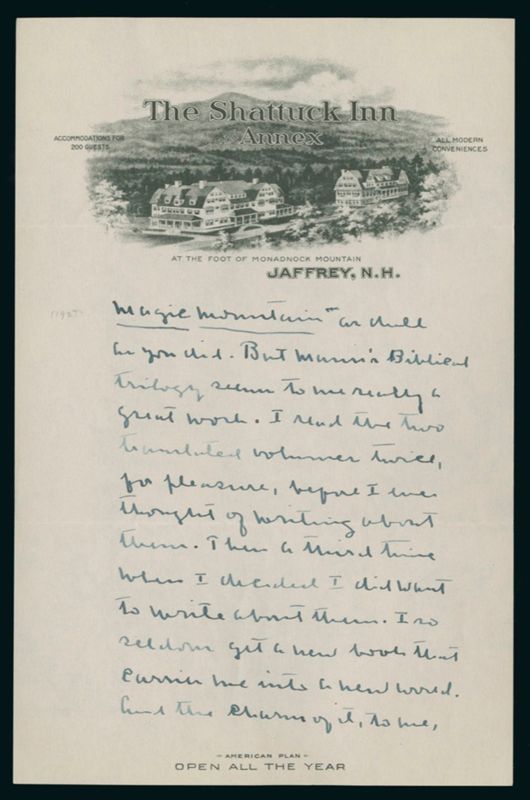 The Shattuck Inn
Annex
ACCOMMODATIONS FOR
200 GUESTS
ALL MODERN
CONVENIENCES
AT THE FOOT OF MONADNOCK MOUNTAIN
JAFFREY, N.H.
Magic Mountain" as dull
as you did. But Mann's Biblical
trilogy seems to me really a
great work. I read the two
translated volumes twice,
for pleasure, before I ever
thought of writing about
them. Then a third time
when I decided I did want
to write about them. I so
seldom get a new book that
carries me into a new world.
And the charm of it, to me,
- AMERICAN PLAN -
OPEN ALL THE YEAR